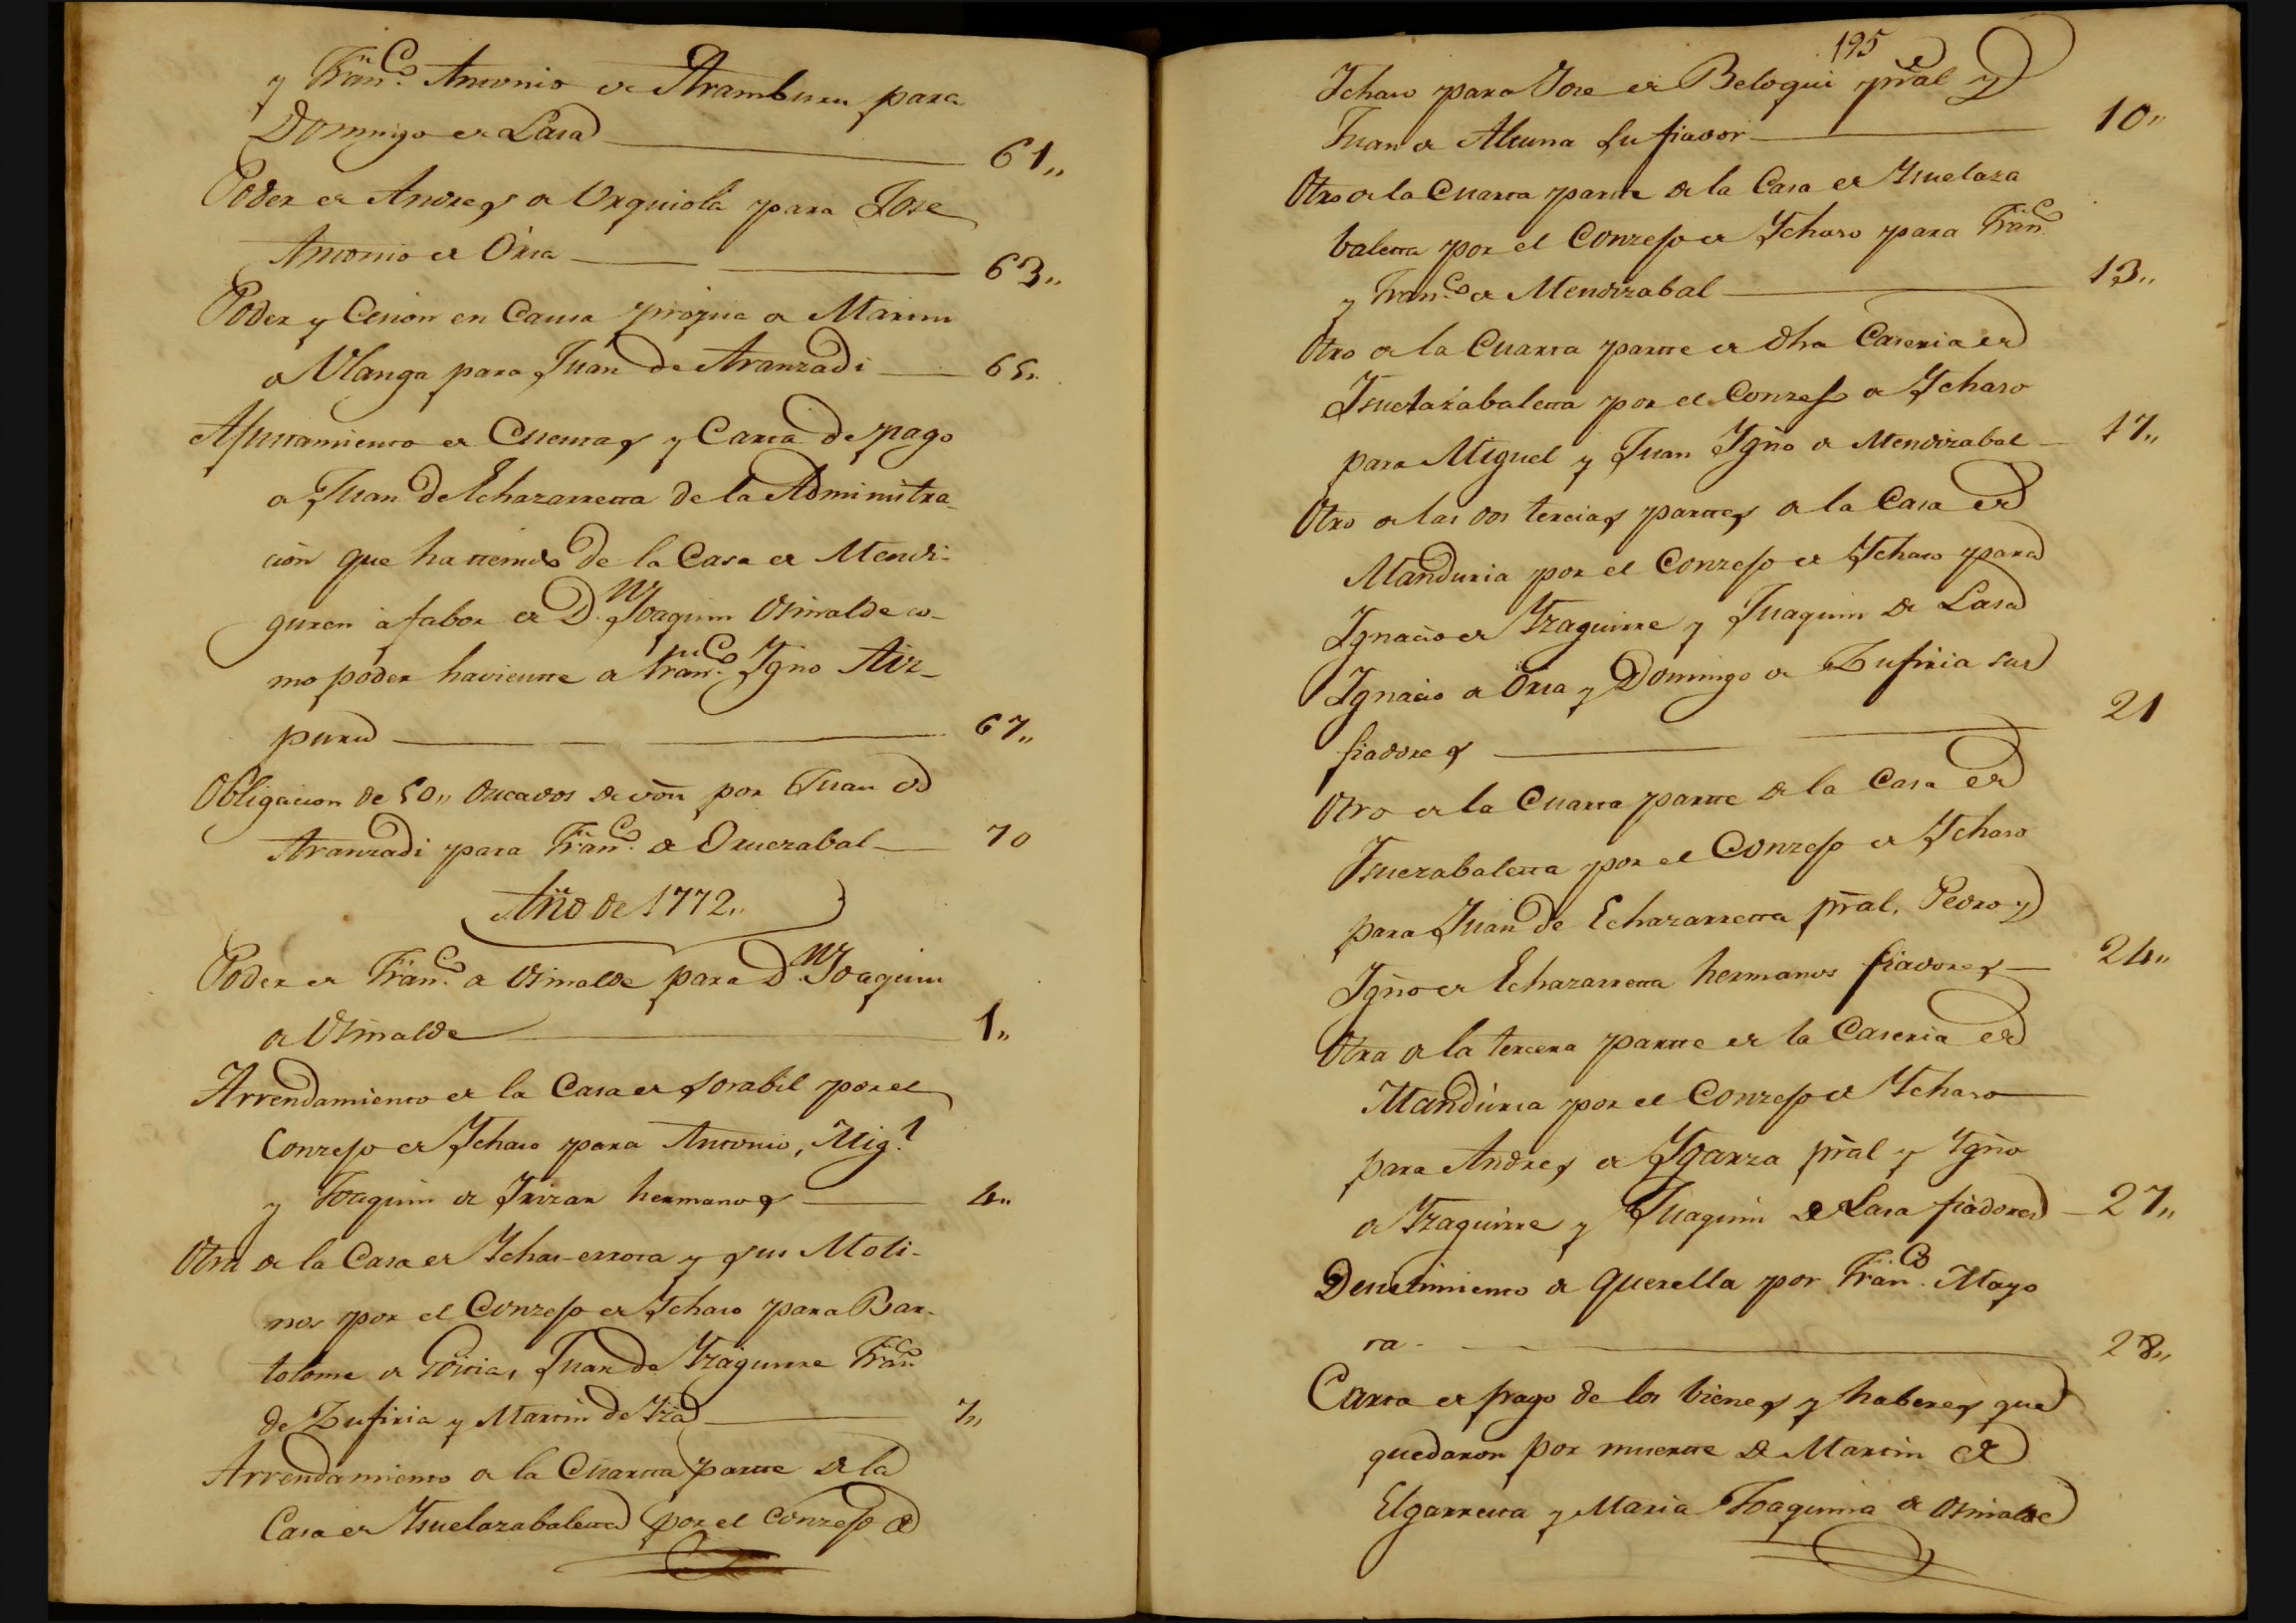 y Fran.co Antonio de Aramburu para
Domingo de Lasa 61,,
Poder de Andres de Urquiola para Jose
Antonio de Oria 63,,
Poder y Cesion en Causa propria de Martin
de Ulanga para Juan de Aranzadi 65,,
Ajustamiento de Cuentas y Carta de pago
a Juan de Echazarretta de la Administra-
cion que ha ttenido de la Casa de Mendi-
guren á fabor de D.n Joaquin Osinalde co-
mo poder haviente de Fran.co Ygno Aiz-
puru 67,,
Obligacion de 50,, Ducados de von por Juan de
Aranzadi para Fran.co de Oruezabal 70
Año de 1772,,
Poder de Fran.co de Osinalde para D.n Joaquin
de Osinalde 1,,
Arrendamiento de la Casa de Sorabil por el
Conzejo de Ychaso para Antonio, Mig.l
y Joaquin de Irizar hermanos 4,,
Otra de la Casa de Ychas-errota y sus Moli-
nos por el Conzejo de Ychaso para Bar-
tolome de Goitia, Juan de Yzaguirre Fran.co
de Zufiria y Martin de Yza 7,,
Arrendamiento de la Cuartta partte de la
Casa de Ysuelazabaletta por el Conzejo de
195
Ychaso para Jose de Beloqui pral y
Juan de Altuna su fiador 10,,
Otro de la Cuarta partte de la Casa de Ysuelaza
baletta por el Conzejo de Ychaso para Fran.co
y Fran.co de Mendizabal 13,,
Otro de la Cuarta partte de dha Caseria de
Ysuelazabaletta por el Conzejo de Ychaso
para Miguel y Juan Ygño de Mendizabal 17,,
Otro de las dos tercias parttes de la Casa de
Manduria por el Conzejo de Ychaso para
Ignacio de Yzaguirre y Juaquin de Lasa
Ignacio de Oria y Domingo de Zufiria sus
fiadores 21
Otro de la Cuarta partte de la Casa de
Ysuezabaletta por el Conzejo de Ychaso
para Juan de Echazarretta pral, Pedro y
Ygño de Echazarretta hermanos fiadores 24,,
Otra de la tercera partte de la Caseria de
Manduria por el Conzejo de Ychaso
para Andres de Ygarza pral y Ygño
de Yzaguirre y Juaquin de Lasa fiadores 27,,
Desistimiento de querella por Fran.co Mayo
ra 28,,
Carta de pago de los bienes y haberes que
quedaron por muertte de Martin de
Elgarresta y Maria Joaquina de Osinalde